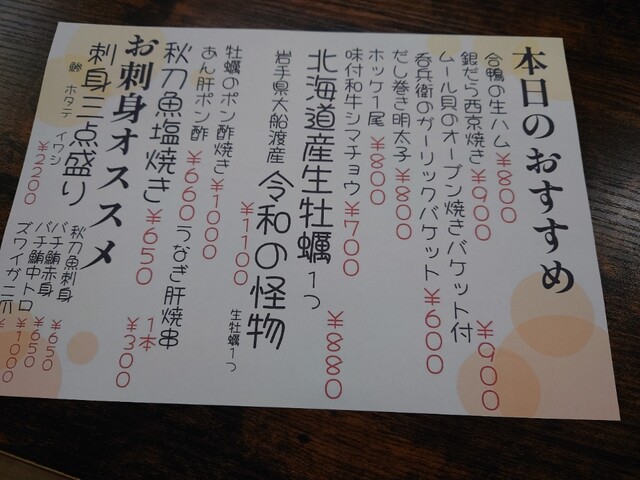 本日のおすすめ
合鴨の生ハム ¥800
銀だら西京焼き ¥900
ムール貝のオーブン焼きバケット付 ¥900
呑兵衛のガーリックバケット ¥600
だし巻き明太子 ¥800
ホッケ1尾 ¥800
味付和牛シマチョウ ¥700
北海道産生牡蠣1つ ¥880
岩手県大船渡産 令和の怪物 生牡蠣1つ ¥1100
牡蠣のポン酢焼き ¥1000
あん肝ポン酢 ¥660
うなぎ肝焼串 1本 ¥300
秋刀魚塩焼き ¥650
お刺身オススメ
刺身三点盛り ¥2200
鯵 ホタテ イワシ
秋刀魚刺身 ¥650
バチ鮪赤身 ¥650
バチ鮪中トロ ¥1000
ズワイガニ爪